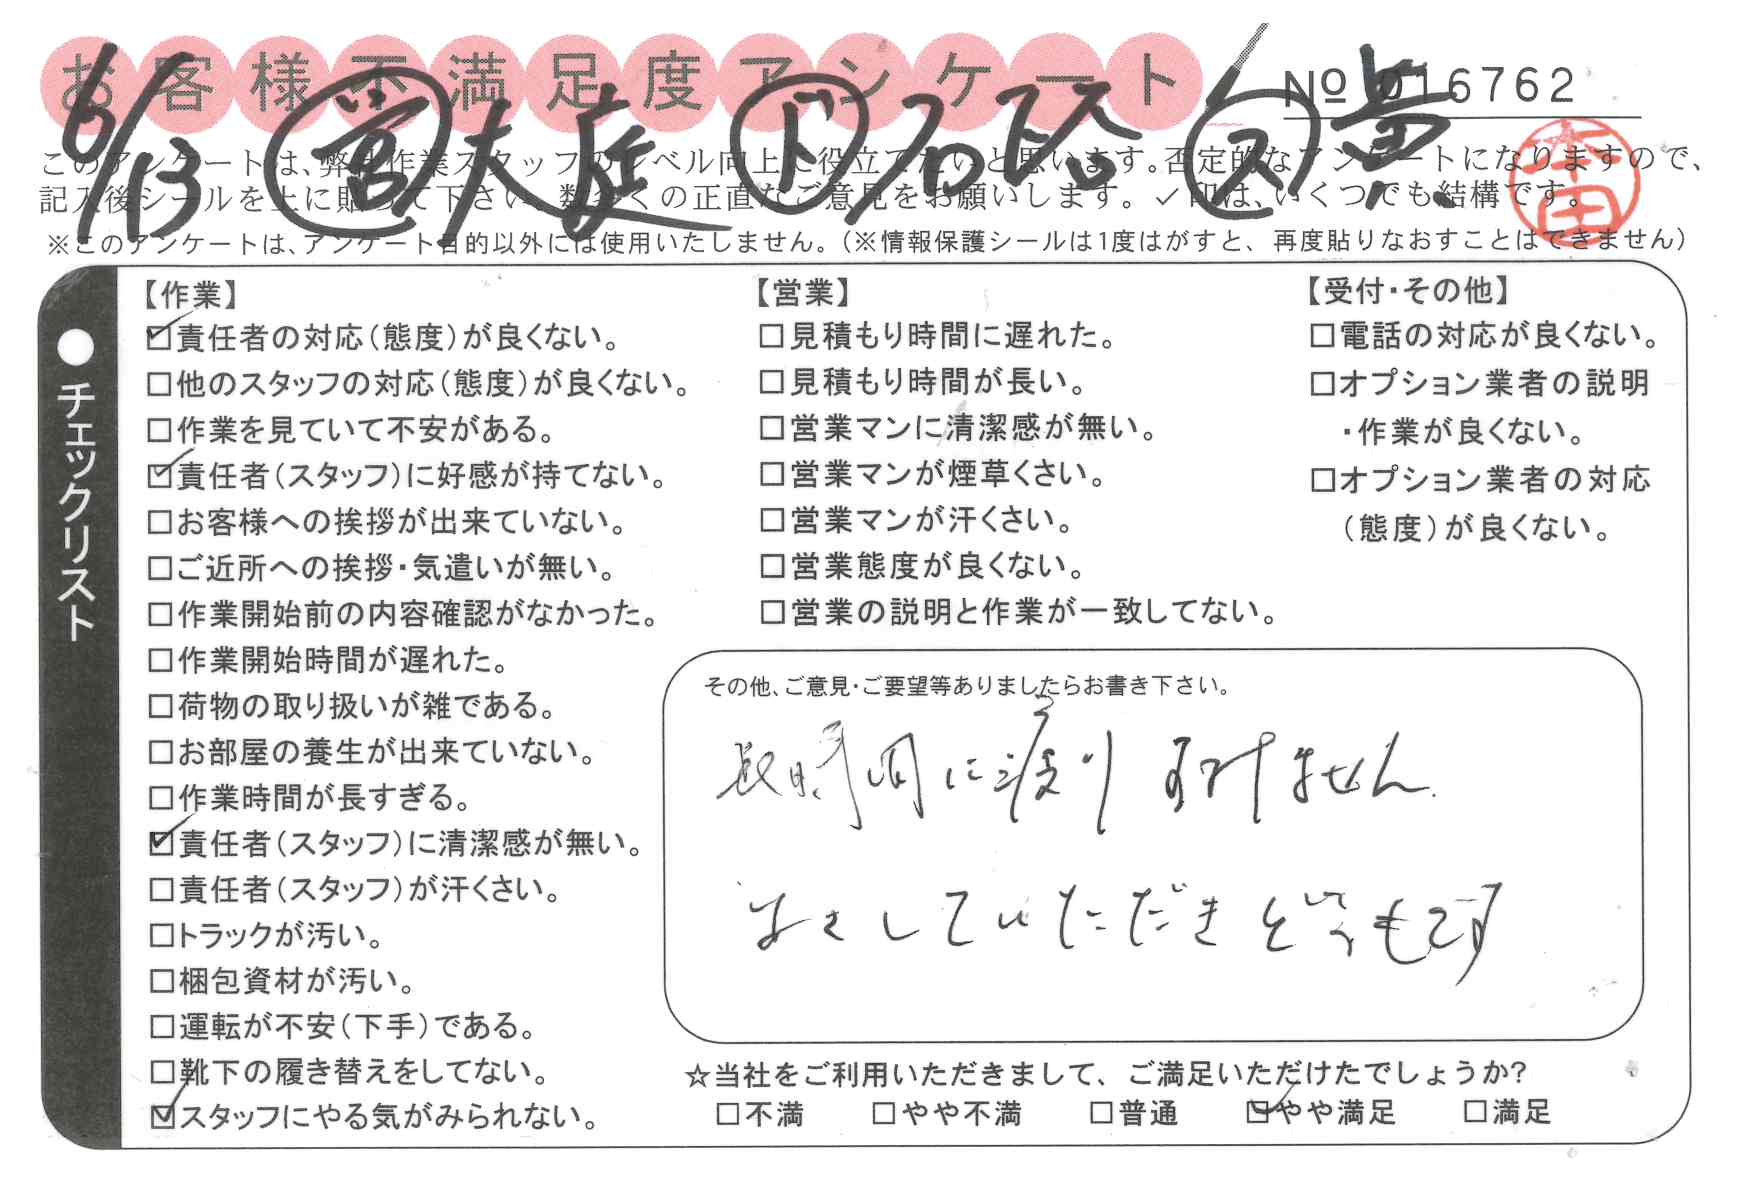 お客様不満足度アンケート
№ 016762
6/13 営 大庭 ド
このアンケートは、弊社作業スタッフのレベル向上に役立てたいと思います。否定的なアンケートになりますので、
記入後シールを上に貼って下さい。数多くの正直なご意見をお願いします。✓印は、いくつでも結構です。
※このアンケートは、アンケート目的以外には使用いたしません。(※情報保護シールは1度はがすと、再度貼りなおすことはできません)
●チェックリスト
【作業】
☑責任者の対応(態度)が良くない。
□他のスタッフの対応(態度)が良くない。
□作業を見ていて不安がある。
☑責任者(スタッフ)に好感が持てない。
□お客様への挨拶が出来ていない。
□ご近所への挨拶・気遣いが無い。
□作業開始前の内容確認がなかった。
□作業開始時間が遅れた。
□荷物の取り扱いが雑である。
□お部屋の養生が出来ていない。
□作業時間が長すぎる。
☑責任者(スタッフ)に清潔感が無い。
□責任者(スタッフ)が汗くさい。
□トラックが汚い。
□梱包資材が汚い。
□運転が不安(下手)である。
□靴下の履き替えをしてない。
☑スタッフにやる気がみられない。
【営業】
□見積もり時間に遅れた。
□見積もり時間が長い。
□営業マンに清潔感が無い。
□営業マンが煙草くさい。
□営業マンが汗くさい。
□営業態度が良くない。
□営業の説明と作業が一致してない。
【受付・その他】
□電話の対応が良くない。
□オプション業者の説明
・作業が良くない。
□オプション業者の対応
(態度)が良くない。
その他、ご意見・ご要望等ありましたらお書き下さい。
長時間に渡り すみません
していただき どうもです
☆当社をご利用いただきまして、ご満足いただけたでしょうか?
□不満 □やや不満 □普通 ☑やや満足 □満足